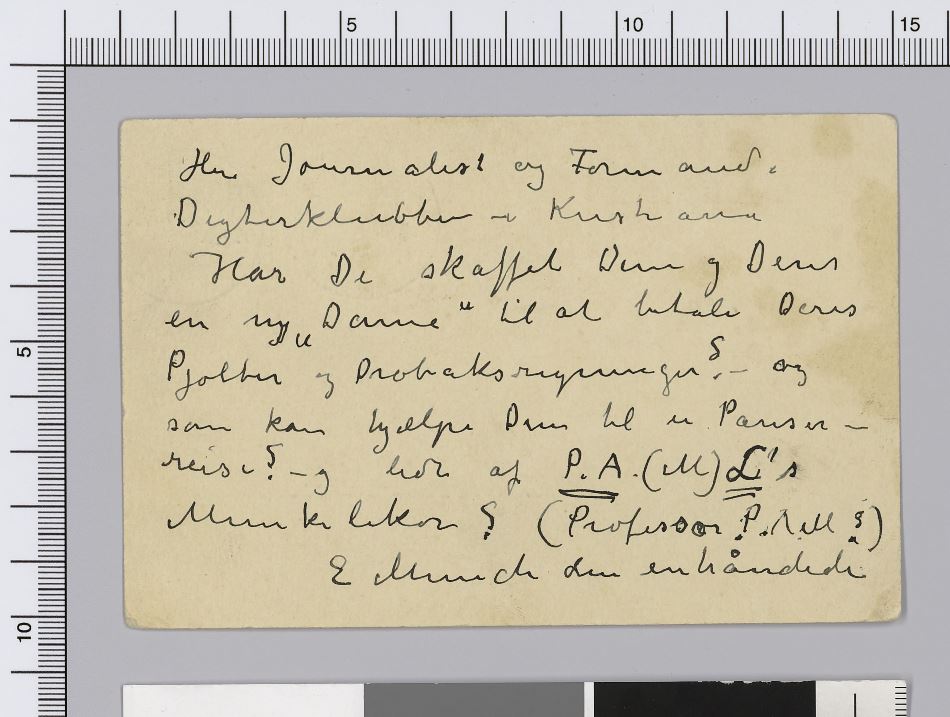 5 10 15
5
10
Herr Journalist og Formand.
Digterklubben i Kristiania
Har De skaffet Dem og Deres
en ny „Dame“ til at betale Deres
Pjolter og Drobaksregninger? – og
som kan hjælpe Dem til en Pariser –
reise? – og lidt af P. A. (M) L's
Munkelikør ? (Professor P. A M ?)
E Munch den enhåndede